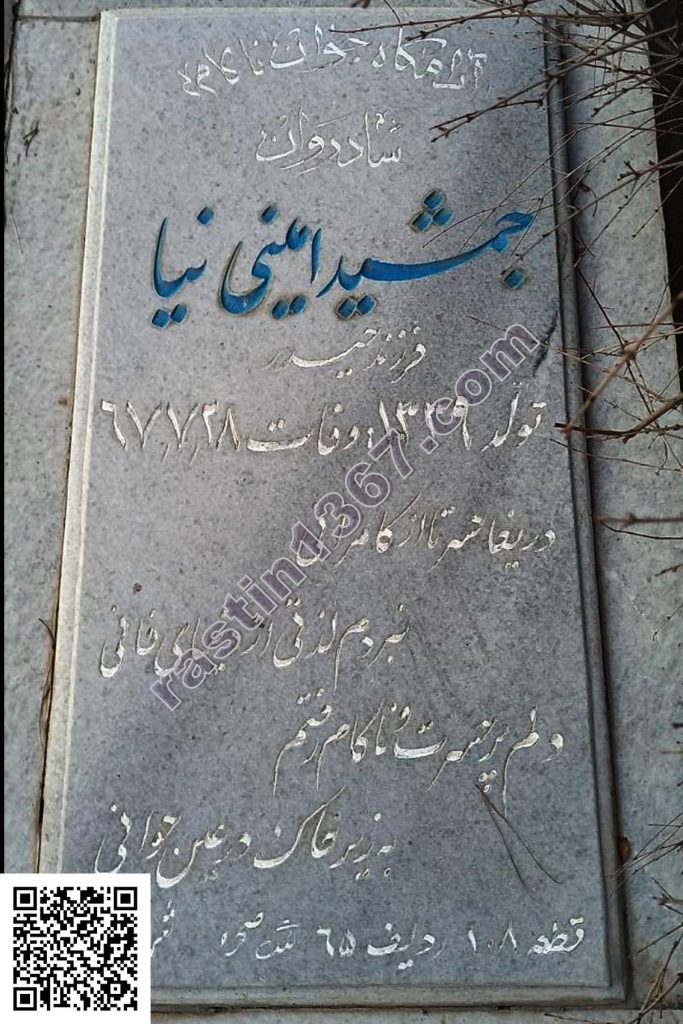 آرامگاه جوان ناکام
شادروان
جمشید امینی نیا
فرزند حیدر
تولد ۱۳۳۹ وفات ۶۷٫۷٫۲۸
دریغا حسرتا از کامرانی
نبردم لذتی از دنیای فانی
دلم پر حسرت و ناکام رفتم
به زیر خاک در عین جوانی
قطعه ۱۰۸ ردیف ۶۵
rastin1367.com